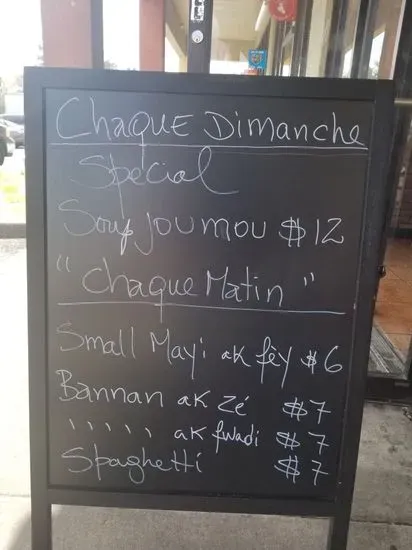 Chaque Dimanche
Special
Soup joumou $12
"Chaque Matin"
Small Mayi ak fèy $6
Bannan ak Zé $7
" " " " " ak fwadi $7
Spaghetti $7